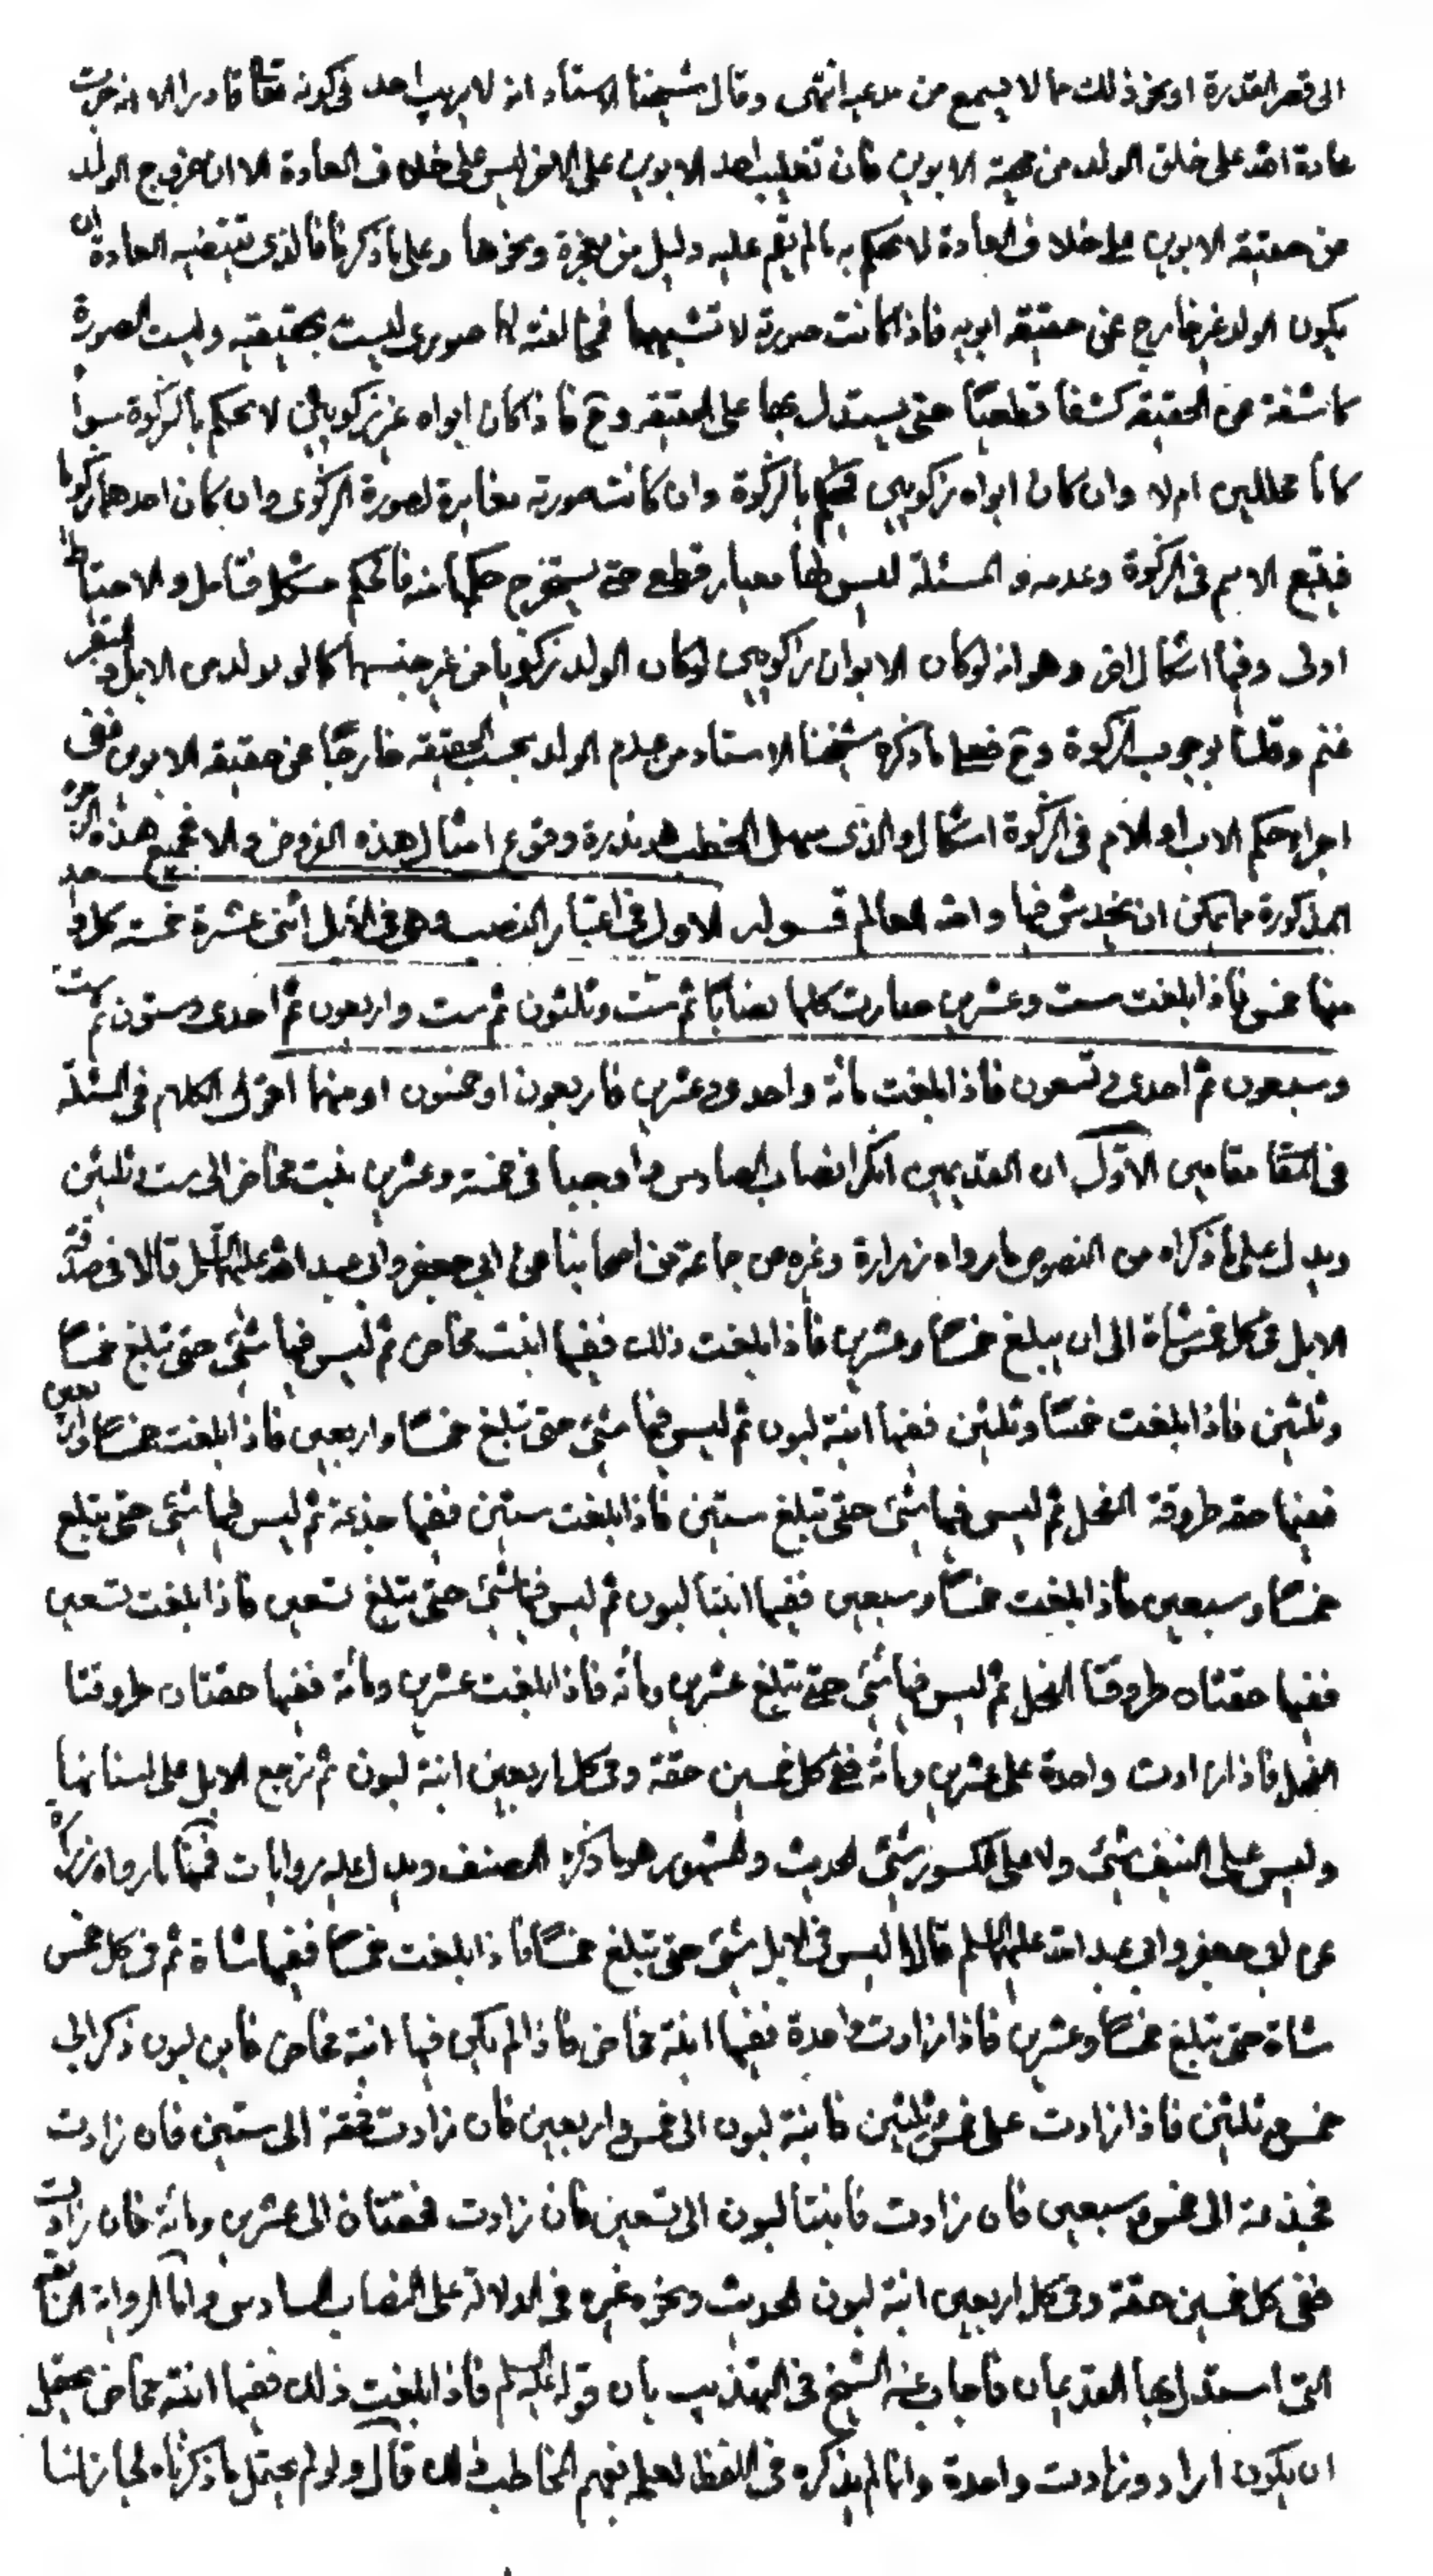 الى قصر القدرة او نحو ذلك مما لا يسمع من مدعيه انتهى وقال شيخنا الاستاد انه لا يريب احد في كونه تعالى قادرا الا انه جرت
عادة الله على خلق الولد من جهة الابوين فان تغليب احد الابوين على الاخر ليس على خلاف العادة الا ان خروج الولد
من حقيقة الابوين على خلاف العادة لا نحكم به ما لم يقم عليه دليل من معجزة ونحوها وعلى ما ذكرنا فالذي تقتضيه العادة ان
يكون الولد غير خارج عن حقيقة ابويه فاذا كانت صورته لا تشبههما فمخالفته لهما صوري ليست بحقيقية وليست الصورة
كاشفة عن الحقيقة كشفا قطعيا حتى يستدل بها على الحقيقة وح فاذا كان ابواه غير زكويين لا نحكم بالزكوة سواء
كانا محللين ام لا وان كان ابواه زكويين نحكم بالزكوة وان كانت صورته مغايرة لصورة الزكوي وان كان احدهما زكويا
فيتبع الاسم في الزكوة وعدمه والمسئلة ليس لها معيار قطعي حتى يستخرج حكمها منه فالحكم مشكل فتامل والاحتياط
اولى وفيها اشكال اخر وهو انه لو كان الابوان زكويين لو كان الولد زكويا من غير جنسهما كما لو تولد من الابل والبقر
غنم وقلنا بوجوب الزكوة وح فعلى ما ذكره شيخنا الاستاد من عدم الولد بحسب الحقيقة خارجا عن حقيقة الابوين ففي
اجراء حكم الاب او الام في الزكوة اشكال والذي يسهل الخطب هو ندرة وقوع امثال هذه الفروض والا فجميع هذه الوجوه
المذكورة مما يمكن ان يخدش فيها والله العالم قوله الاول في اعتبار النصب وهي في الابل اثنى عشرة خمسة كل واحد
منها خمس فاذا بلغت ست وعشرين صارت كلها نصابا ثم ست وثلثون ثم ست واربعون ثم احدى وستون ثم ست
وسبعون ثم احدى وتسعون فاذا بلغت مائة واحدى وعشرين فاربعون او خمسون او منهما اقول الكلام في المسئلة
في المقا مقامين الاول ان القديمين انكرا النصاب السادس واوجبا في خمسة وعشرين بنت مخاض الى ست وثلثين
ويدل على ما ذكراه من النصوص ما رواه زرارة وغيره من جماعة من اصحابنا عن ابي جعفر وابي عبد الله عليهما السلم قالا في صدقة
الابل في كل خمس شاة الى ان يبلغ خمسا وعشرين فاذا بلغت ذلك ففيها ابنت مخاض ثم ليس فيها شئ حتى تبلغ خمسا
وثلثين فاذا بلغت خمسا وثلثين ففيها ابنة لبون ثم ليس فيها شئ حتى تبلغ خمسا واربعين فاذا بلغت خمسا واربعين
ففيها حقة طروقة الفحل ثم ليس فيها شئ حتى تبلغ ستين فاذا بلغت ستين ففيها جذعة ثم ليس فيها شئ حتى تبلغ
خمسا وسبعين فاذا بلغت خمسا وسبعين ففيها ابنتا لبون ثم ليس فيها شئ حتى تبلغ تسعين فاذا بلغت تسعين
ففيها حقتان طروقتا الفحل ثم ليس فيها شئ حتى تبلغ عشرين ومائة فاذا بلغت عشرين ومائة ففيها حقتان طروقتا
الفحل فاذا زادت واحدة على عشرين ومائة ففي كل خمسين حقة وفي كل اربعين ابنة لبون ثم ترجع الابل على اسنانها
وليس على النيف شئ ولا على الكسور شئ الحديث والمشهور هو ما ذكره المصنف ويدل عليه روايات فمنها ما رواه زرارة
عن ابي جعفر وابي عبد الله عليهما السلم قالا ليس في الابل شئ حتى تبلغ خمسا فاذا بلغت خمسا ففيها شاة ثم في كل خمس
شاة حتى تبلغ خمسا وعشرين فاذا زادت واحدة ففيها ابنة مخاض فاذا لم يكن فيها ابنة مخاض فابن لبون ذكر الى
خمس وثلثين فاذا زادت على خمس وثلثين فابنة لبون الى خمس واربعين فان زادت فحقة الى ستين فان زادت
فجذعة الى خمس وسبعين فان زادت فابنتا لبون الى تسعين فان زادت فحقتان الى عشرين ومائة فان زادت
ففي كل خمسين حقة وفي كل اربعين ابنة لبون الحديث ونحوه غيره في الدلالة على النصاب السادس واما الرواية
التي استدل بها القديمان فاجاب عنه الشيخ في التهذيب بان قوله عليه السلم فاذا بلغت ذلك ففيها ابنة مخاض يحتمل
ان يكون اراد وزادت واحدة وانما لم يذكره في اللفظ لعلمه بفهم المخاطب ذلك قال ولو لم يحتمل ما ذكرناه لجاز لنا